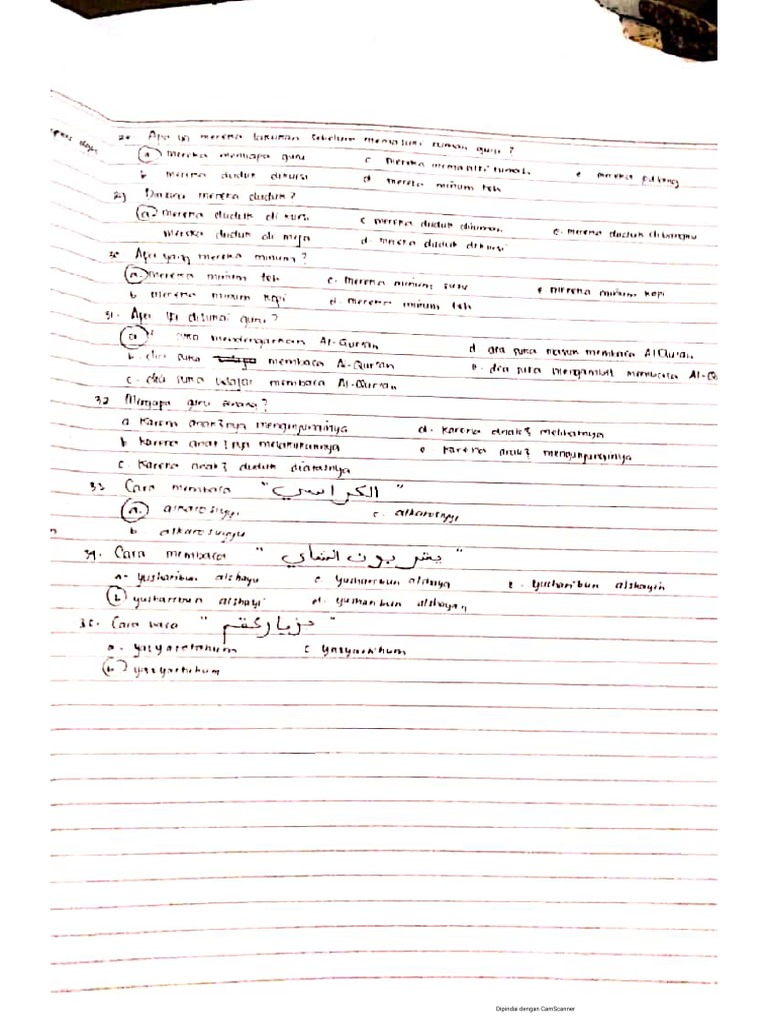 Apa yg mereka lakukan sebelum memasuki rumah guru?
a mereka menyapa guru c mereka memasuki rumah e mereka pulang
b mereka duduk dikursi d mereka minum teh
29 Dimana mereka duduk?
a. mereka duduk di kursi c mereka duduk dirumah e. mereka duduk dibangku
mereka duduk di meja d. mereka duduk dikursi
30 Apa yang mereka minum?
a. mereka minum teh c. mereka minum susu e mereka minum kopi
b mereka minum kopi d. mereka minum teh
31. Apa yg disukai guru?
a suka mendengarkan Al-Quran d dia suka membaca Al Quran
b. dia suka membaca Al-Qur'an e. dia suka mengambil membaca Al-Q
c. dia suka belajar membaca Al-Qur'an
32 Mengapa guru senang?
a karena anak2nya mengunjunginya d. karena anak2 melihatnya
b karena anak2nya melakukannya e karena anak2 mengunjunginya
c. karena anak2 duduk diatasnya
33 Cara membaca "الكراسي"
a. alkarosiyyi c. alkarosiyyi
b. alkarosiyyu
34. Cara membaca "يشربون الشاي"
a. yusharibun alshayu c yusharibun alshaya e. yusharibun alshayin
b. yusharibun alshayi d. yusharibun alshayan
35. Cara baca
a. yazyaretahum c yazyaratihum
b. yazyartuhum